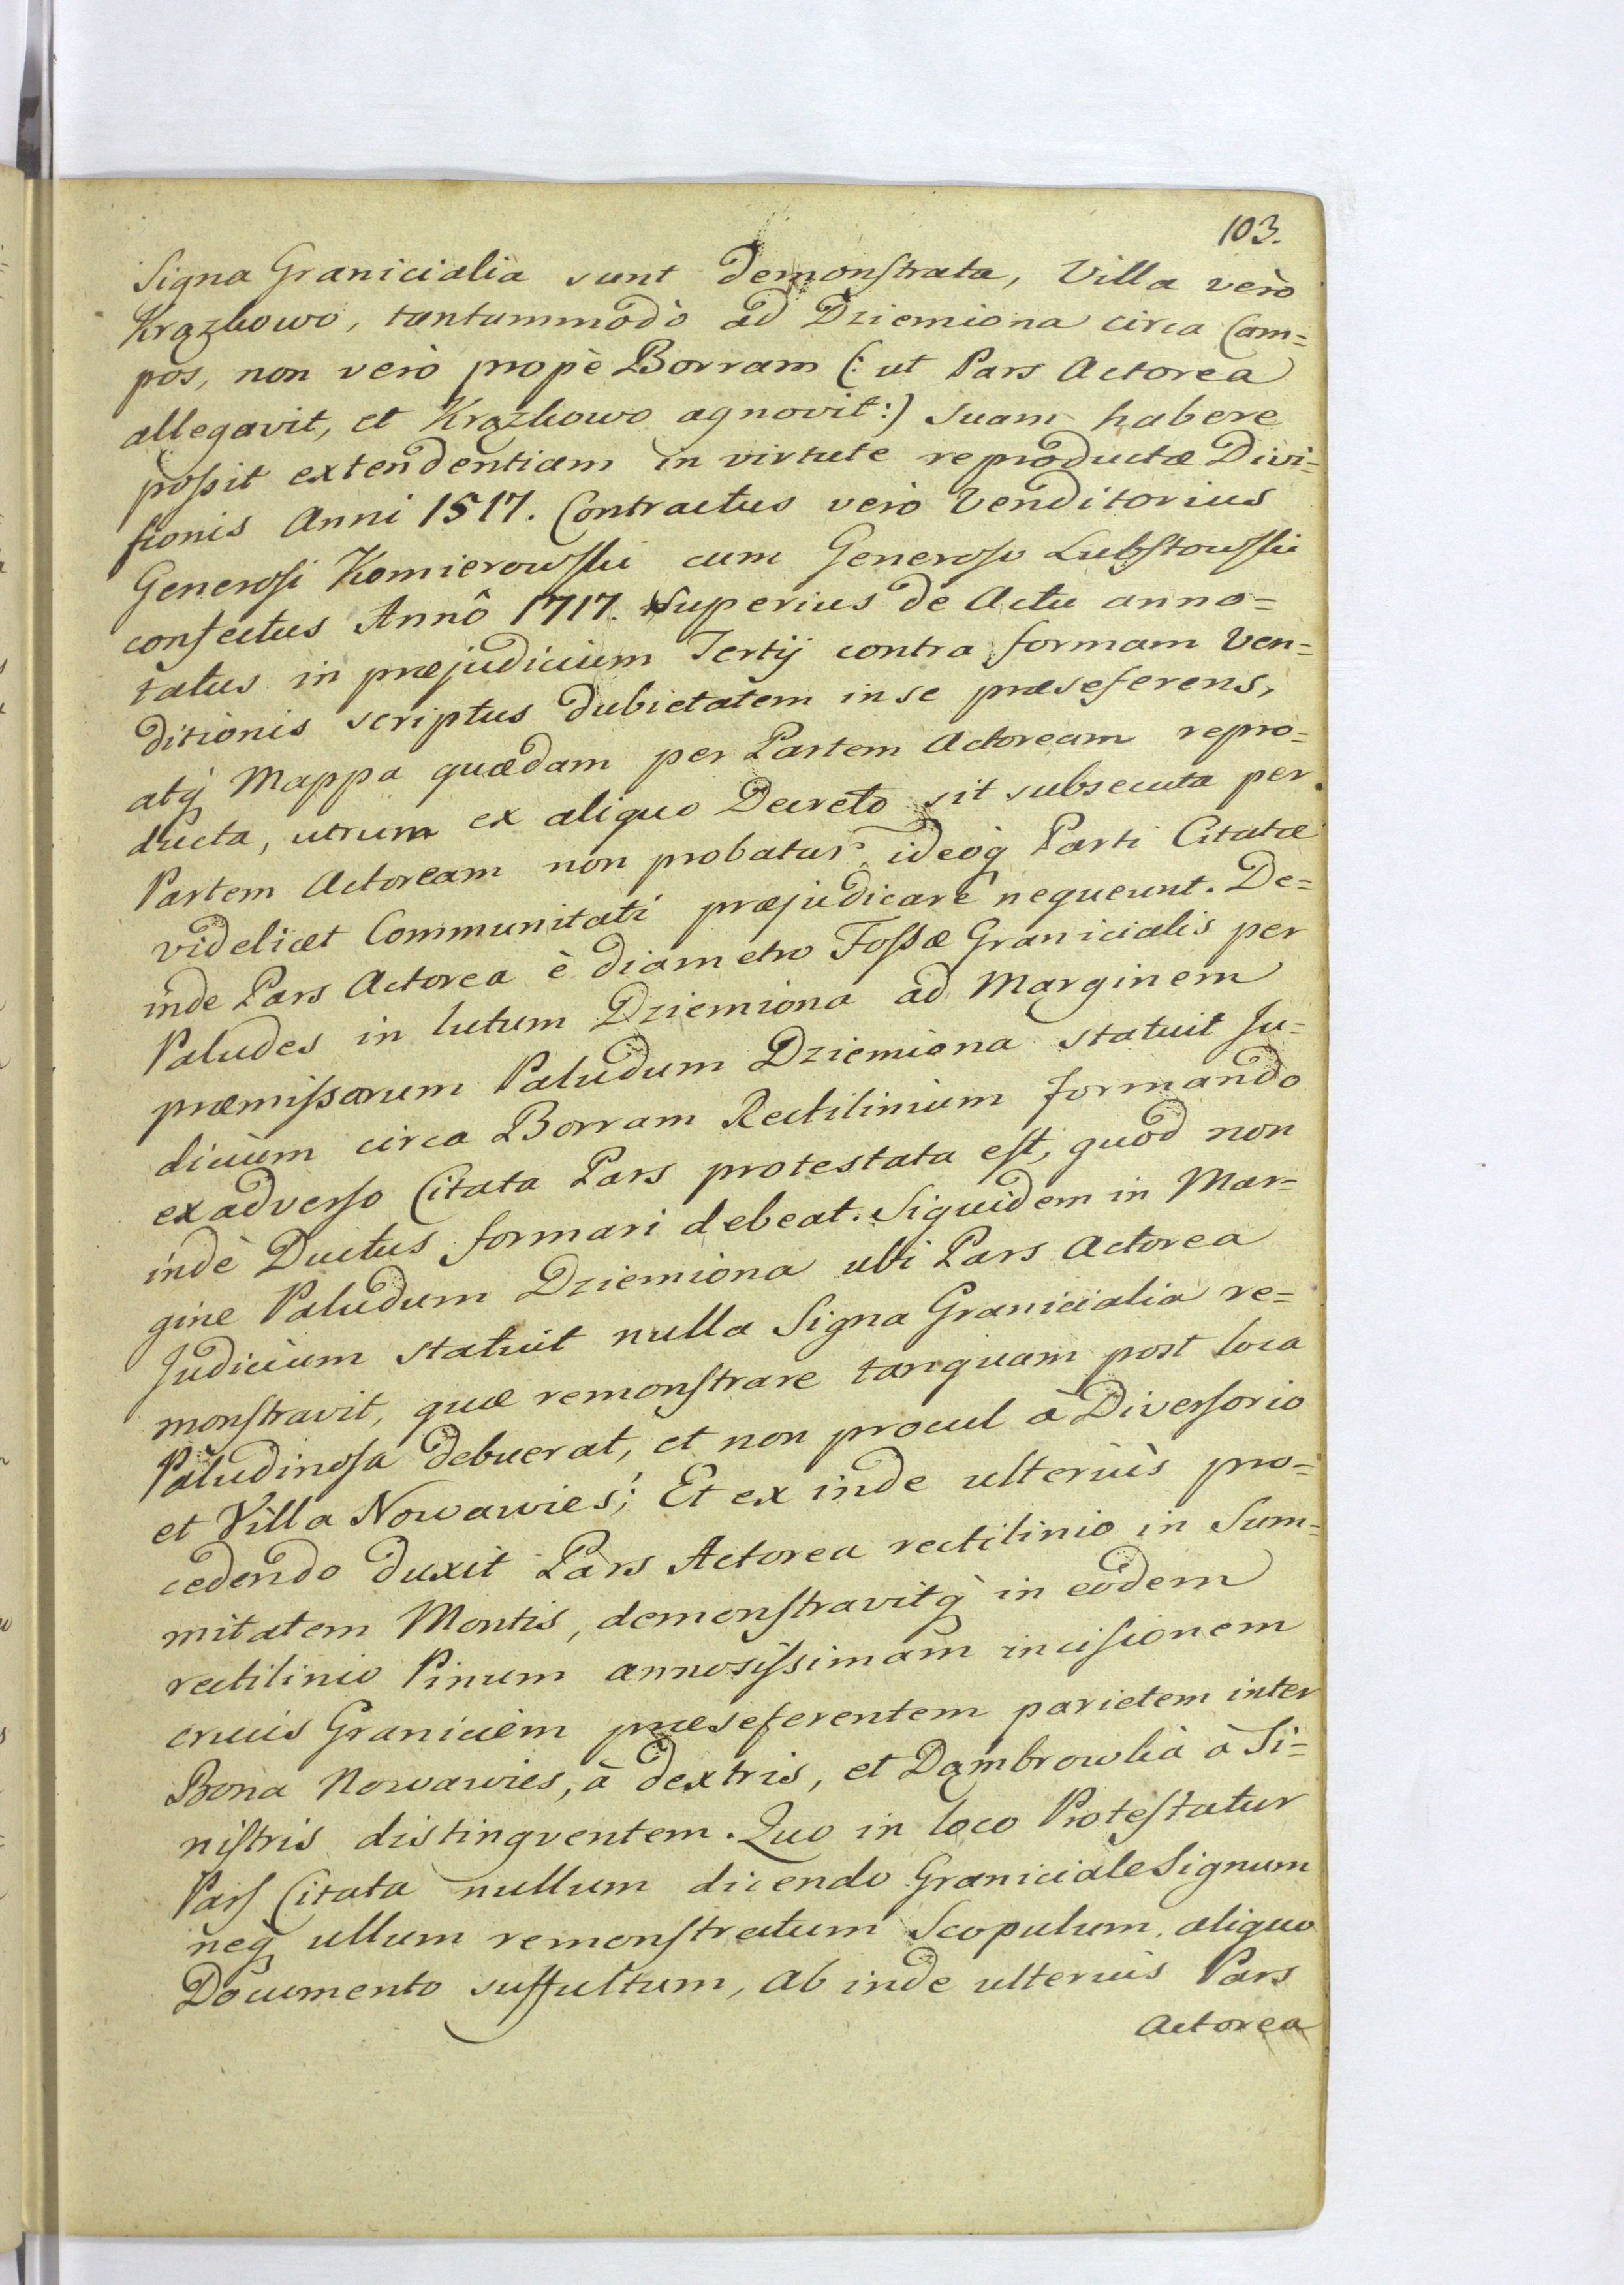 103.
Signa Granicialia sunt demonstrata, Villa verò
Krązkowo, tantummodò ad Dziemiona circa Cam=
pos, non verò propè Borram (: ut Pars Actorea
allegavit, et Krązkowo agnovit:) suam habere
possit extendentiam in virtute reproductæ Divi=
sionis Anni 1517. Contractus verò Venditorius
Generosi Komierowski cum Generoso Lubstowski
confectus Annô 1717. Superius de Actu anno=
tatus in præjudicium Tertij contra formam Ven=
ditionis scriptus dubietatem in se præseferens,
atq́ Mappa quædam per Partem Actoream repro=
ducta, utrum ex aliquo Decreto sit subsecuta per
Partem Actoream non probatur, ideoq́ Parti Citatæ
videlicet Communitati præjudicare nequeunt. De=
inde Pars Actorea è diametro Fossæ Granicialis per
Paludes in lutum Dziemiona ad Marginem
præmissarum Paludum Dziemiona statuit Ju=
dicium circa Borram Rectilinium formando
ex adverso Citata Pars protestata est, quod non
indè Ductus formari debeat. Siquidem in Mar=
gine Paludum Dziemiona ubi Pars Actorea
Judicium statuit nulla Signa Granicialia re=
monstravit, quæ remonstrare tanquam post loca
Paludinosa debuerat, et non procul à Diversorio
et Villa Nowawies; Et ex inde ulteriùs pro=
cedendo duxit Pars Actorea rectilinio in Sum=
mitatem Montis, demonstravitq́ in eodem
rectilinio Pinum annosissimam incisionem
crucis Graniciem præseferentem parietem inter
Bona Nowawies, à dextris, et Dąmbrowka à Si=
nistris distingventem. Quo in loco Protestatur
Pars Citata nullum dicendo Graniciale Signum
neq́ ullum remonstratum Scopulum, aliquo
Documento suffultum, ab inde ulteriùs Pars
Actorea